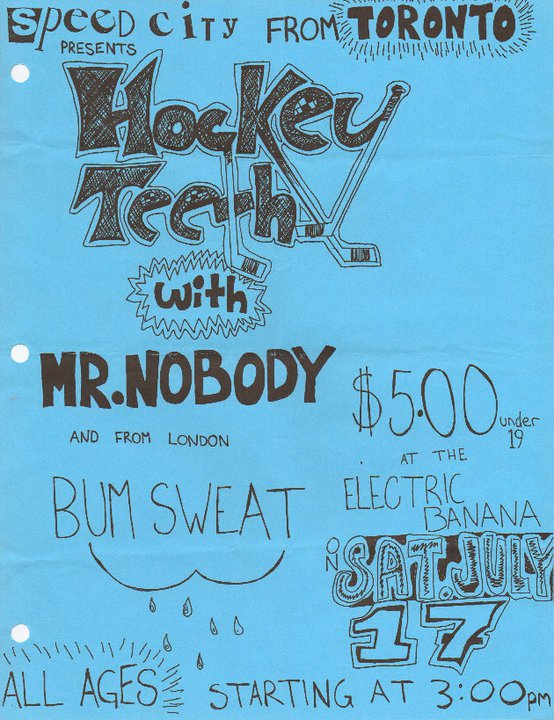 SPEED CITY FROM TORONTO
PRESENTS
Hockey
Teeth
with
MR. NOBODY
AND FROM LONDON
BUM SWEAT
$5.00 under 19
AT THE
ELECTRIC
BANANA
ON SAT. JULY
17
ALL AGES STARTING AT 3:00pm